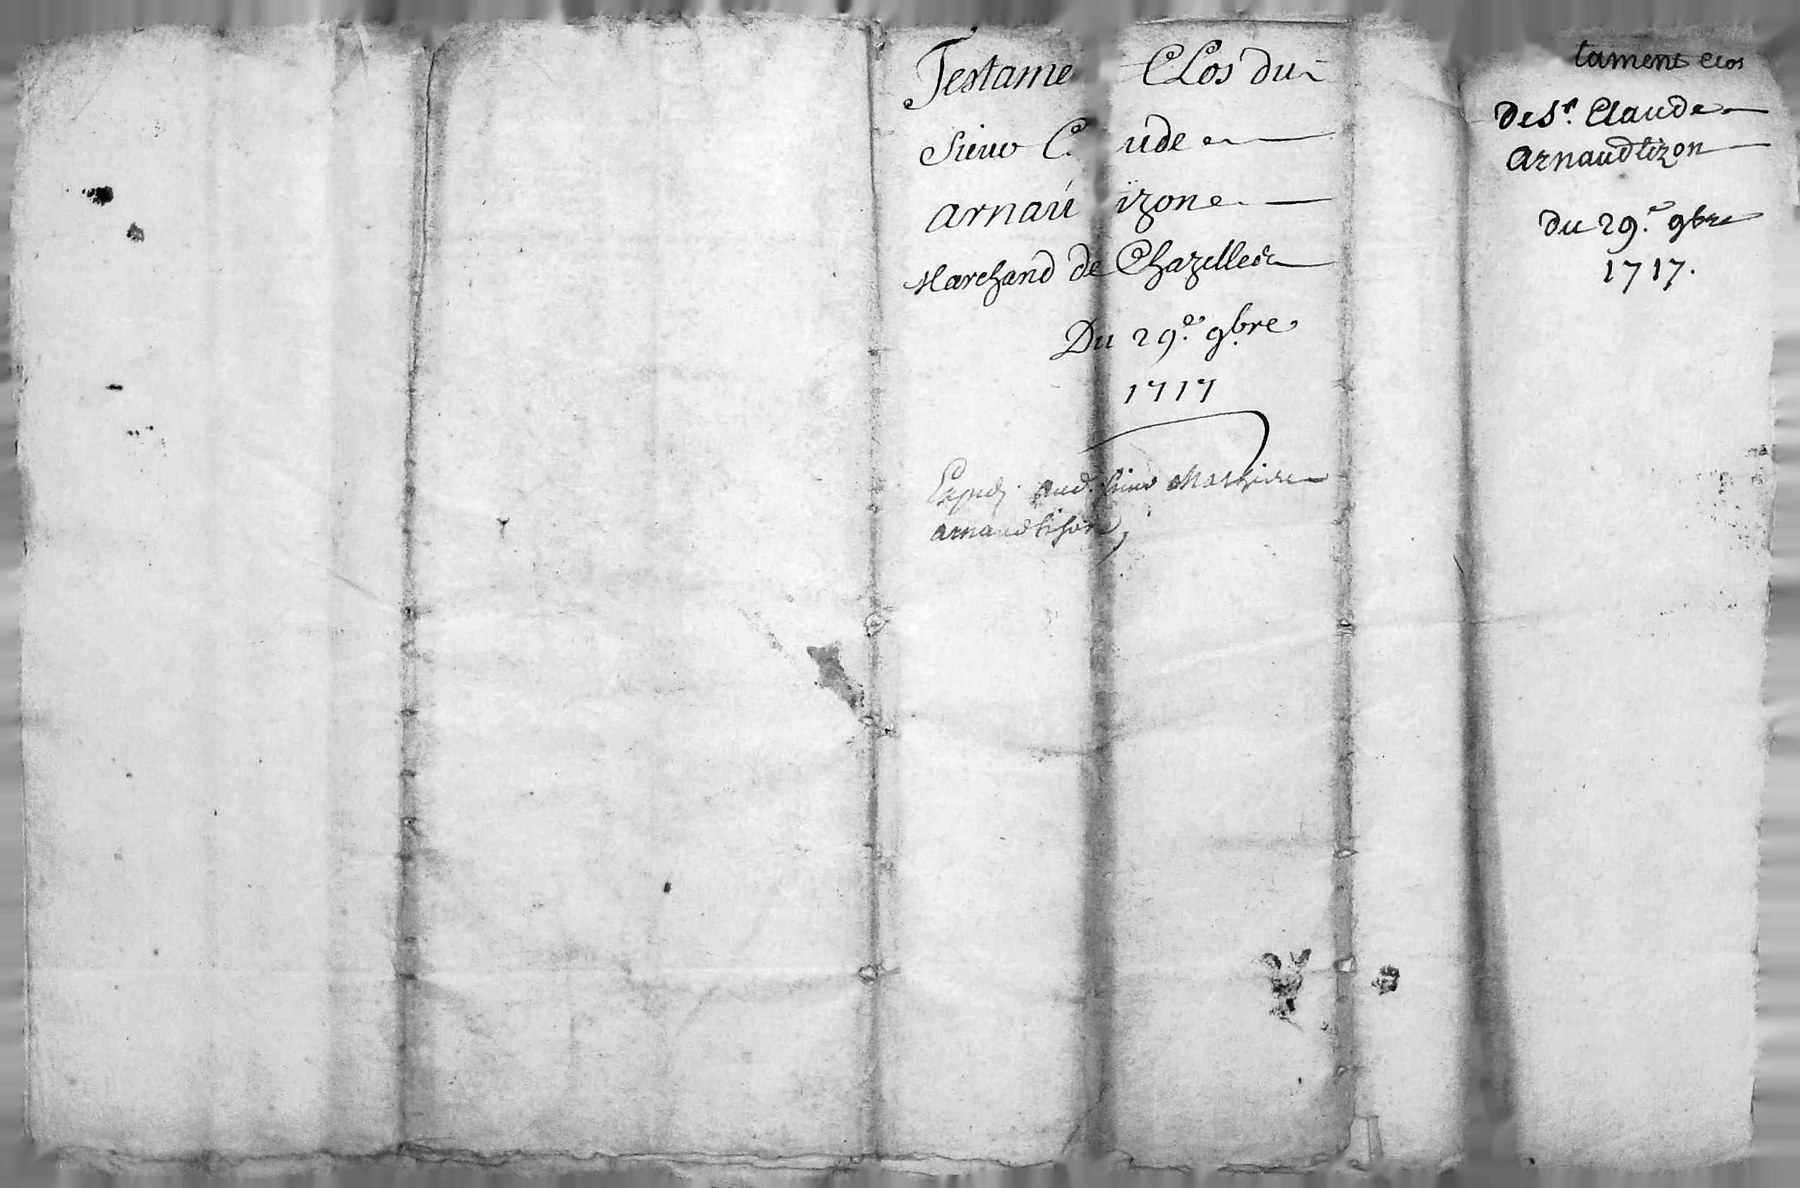 Testame Clos du
Sieur C ude
arnau izon
Marchand de Chazelles
Du 29.e 9bre
1717
Expedi aud. Sieur Mathieu
arnaudtizon
tament clos
de Sr. Claude
Arnaudtizon
du 29.e 9bre
1717.